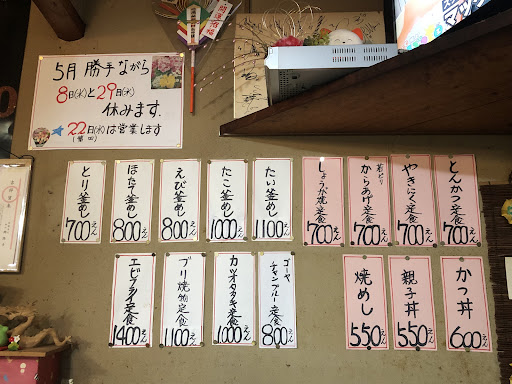 5月 勝手ながら
8日(水)と29日(水)
休みます.
★22日(水)は営業します
とんかつ定食 700えん
やきにく定食 700えん
若どり
からあげ定食 700えん
しょうが焼定食 700えん
たい釜めし 1100えん
たこ釜めし 1000えん
えび釜めし 800えん
ほたて釜めし 800えん
とり釜めし 700えん
かつ丼 600えん
親子丼 550えん
焼めし 550えん
ゴーヤチャンプルー定食 800えん
カツオタタキ定食 1,000えん
ブリ焼物定食 1100えん
エビフライ定食 1400えん